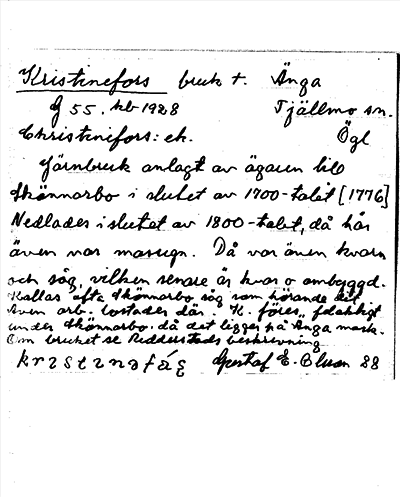 Kristinefors bruk t. Änga
G 55. kb 1928 Tjällmo sn.
Christinefors: ek. Ögl
Järnbruk anlagt av ägaren till
Skönnarbo i slutet av 1700-talet [1776]
Nedlades i slutet av 1800-talet, då här
även var masugn. Då var även kvarn
och såg, vilken senare är kvar o ombyggd.
Kallas ofta Skönnarbo såg som hörande dit
Även arb. bostäder där. K. föres folkligt
under Skönnarbo, då det ligger på Änga mark.
Om bruket se Ridderstads beskrevning
Gustaf E. Olsson 88